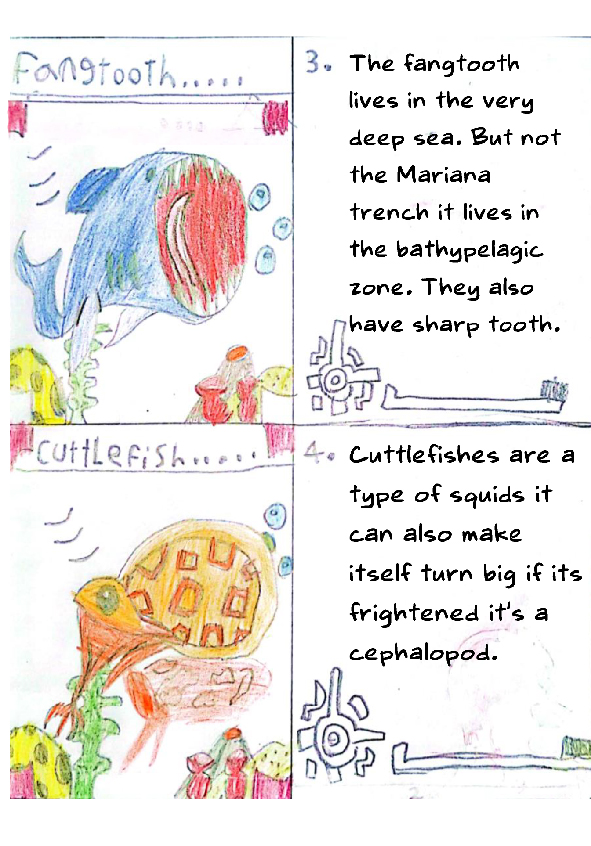 Fangtooth.....
3. The fangtooth
lives in the very
deep sea. But not
the Mariana
trench it lives in
the bathypelagic
zone. They also
have sharp tooth.
Cuttlefish.....
4. Cuttlefishes are a
type of squids it
can also make
itself turn big if its
frightened it's a
cephalopod.